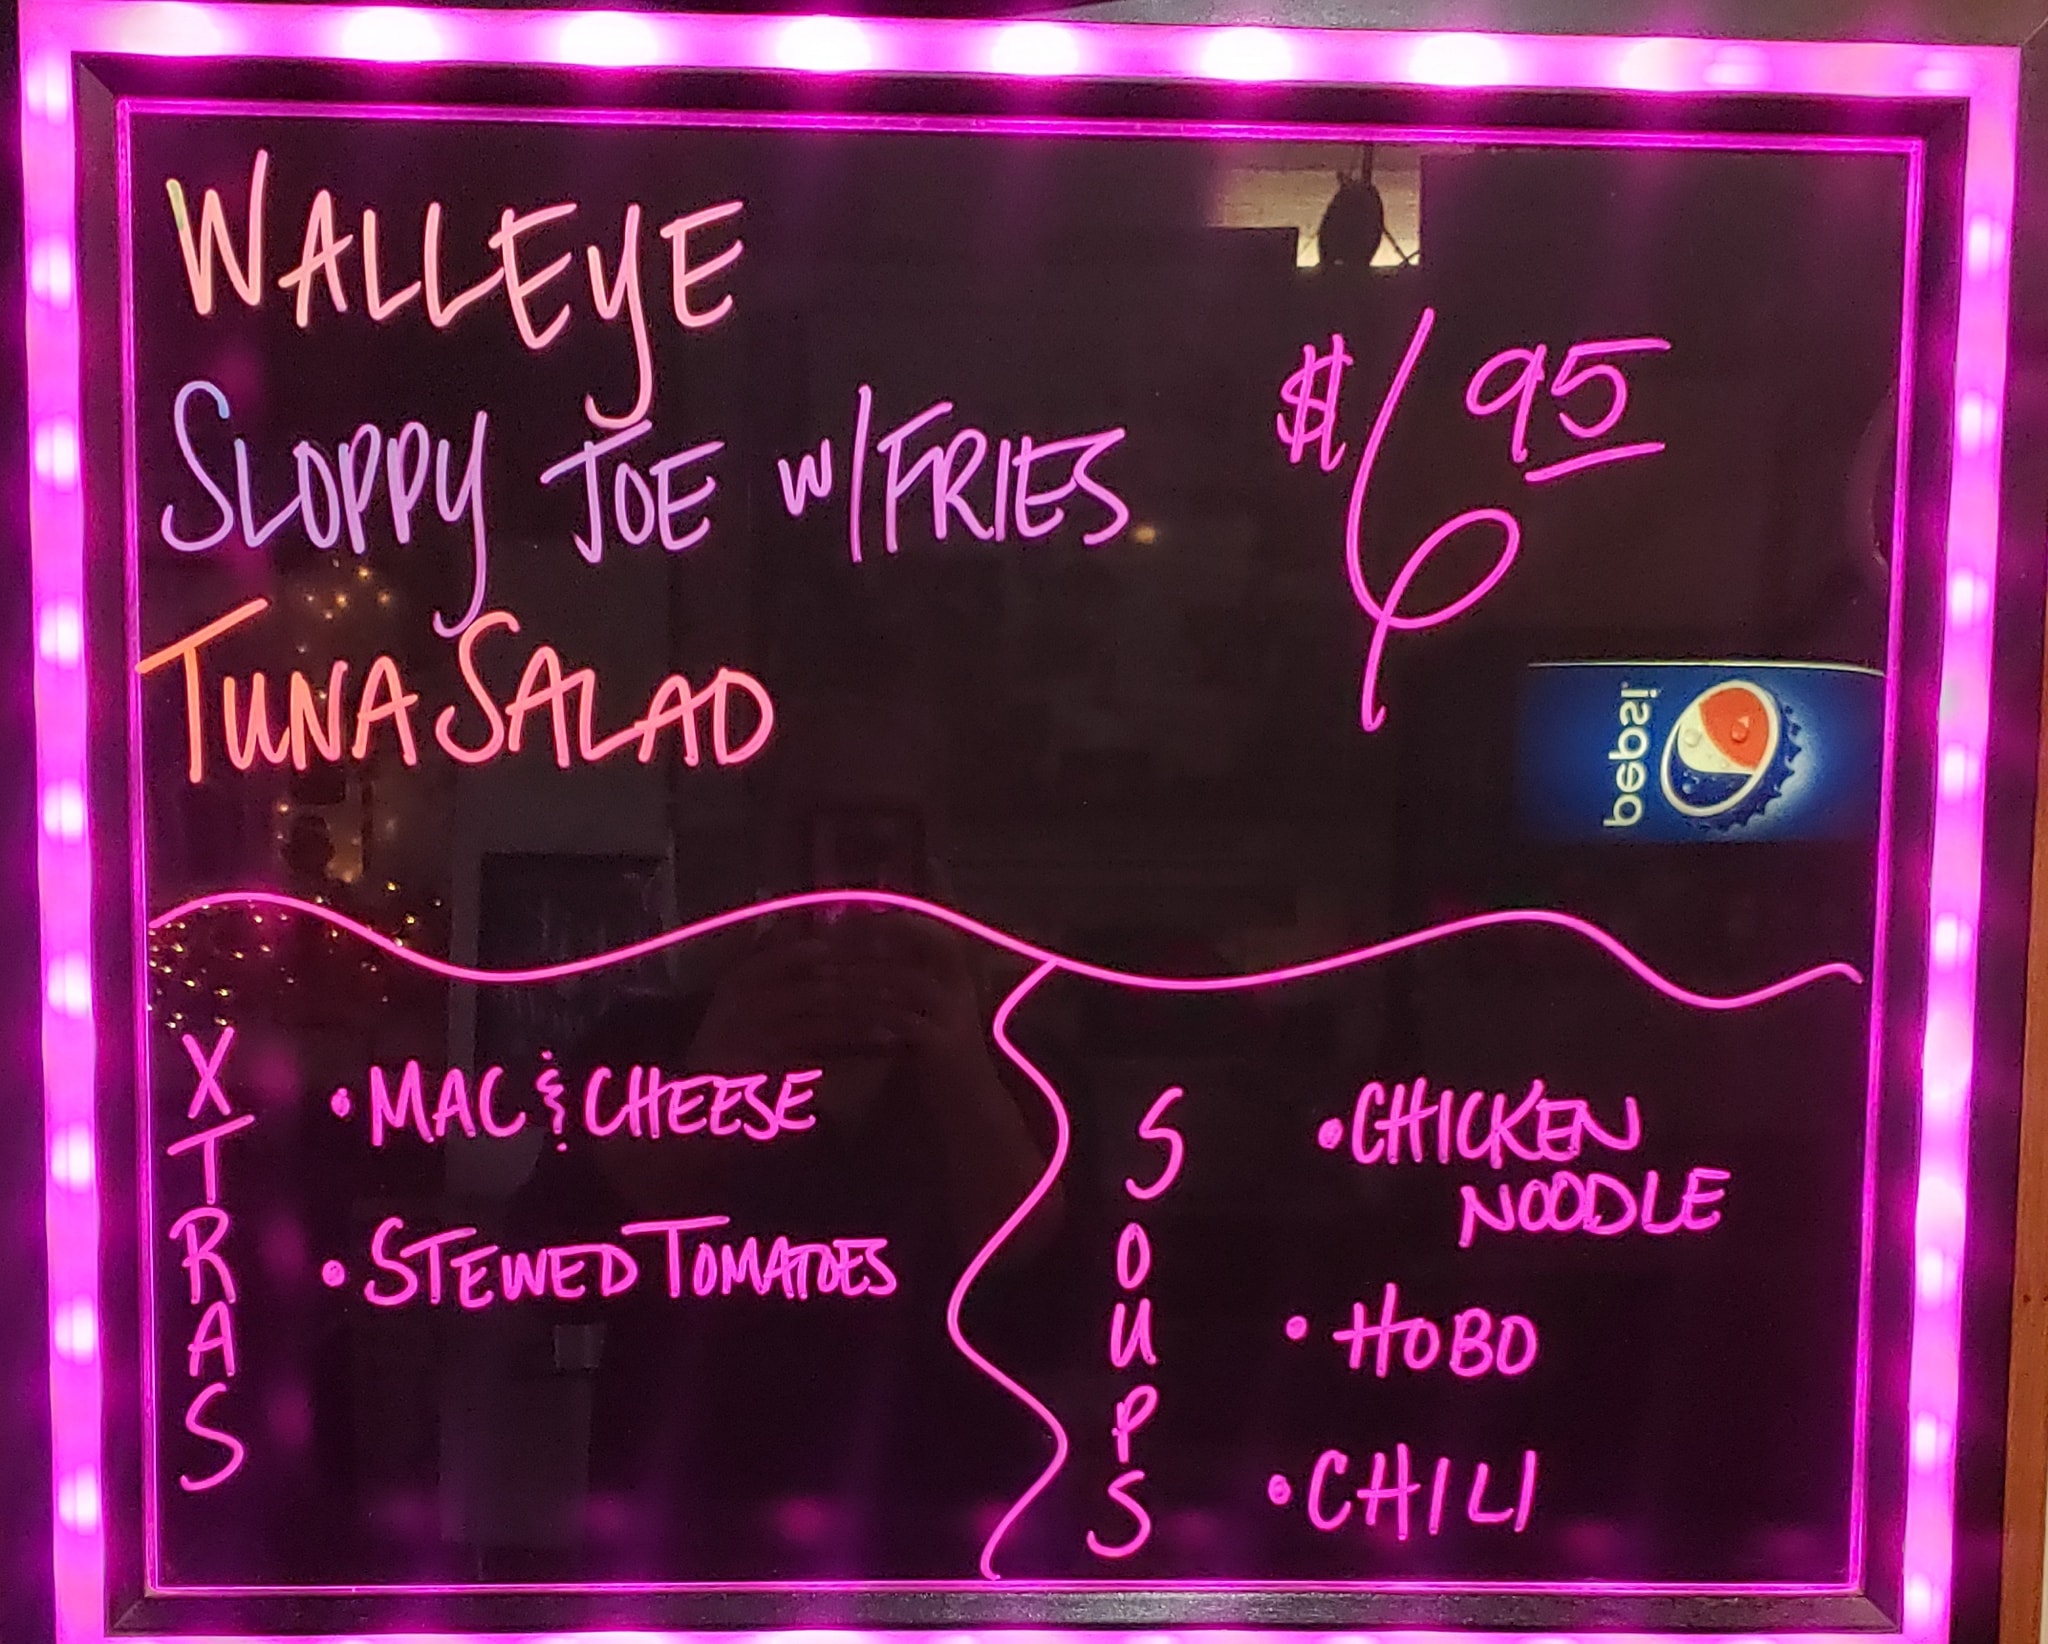 WALLEYE
SLOPPY JOE W/FRIES
$6 95
TUNA SALAD
pepsi
XTRAS
• MAC & CHEESE
• STEWED TOMATOES
SOUPS
• CHICKEN
NOODLE
• HOBO
• CHILI